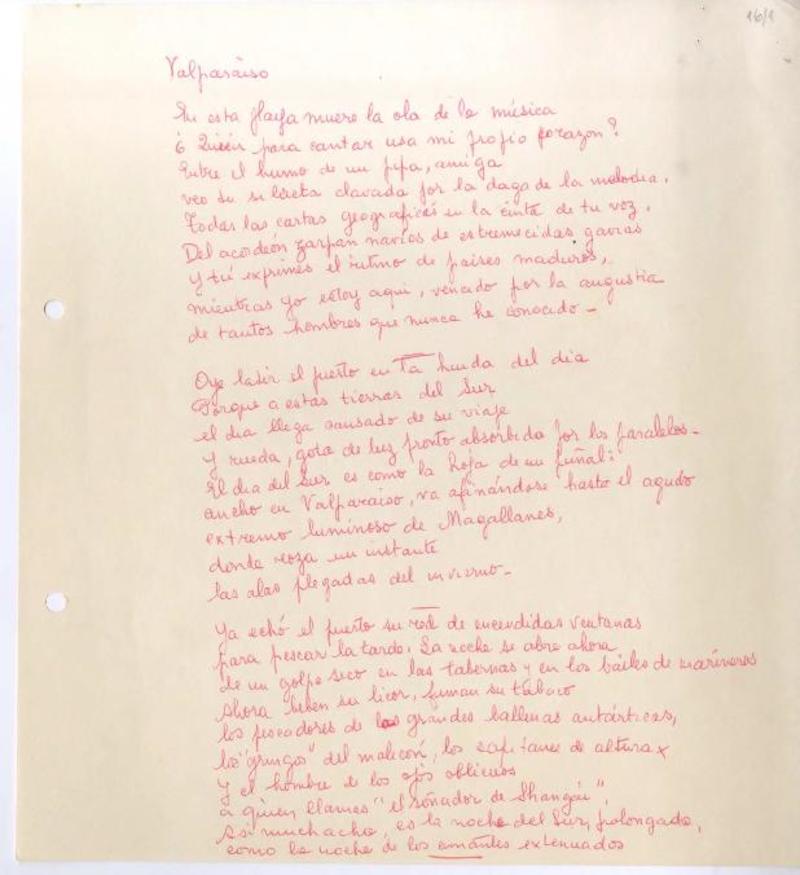 16/1
Valparaiso
En esta playa muere la ola de la música
¿Quién para cantar usa mi propio corazon?
Entre el humo de mi pipa, amiga
veo tu silueta clavada por la daga de la melodia.
Todas las cartas geograficas en la cinta de tu voz.
Del acordeón zarpan navíos de estremecidas gavias
y tú exprimes el ritmo de paises maduros,
mientras yo estoy aqui, vencido por la angustia
de tantos hombres que nunca he conocido -
Oye latir el puerto en la huida del dia
Porque a estas tierras del Sur
el dia llega cansado de su viaje
y rueda, gota de luz pronto absorbida por los paralelos -
El dia del Sur es como la hoja de un puñal:
ancho en Valparaiso, va afinándose hasta el agudo
extremo luminoso de Magallanes,
donde roza un instante
las alas plegadas del invierno -
Ya echó el puerto su red de encendidas ventanas
para pescar la tarde. La noche se abre ahora
de un golpe seco en las tabernas y en los bailes de marineros
Ahora beben su licor, fuman su tabaco
los pescadores de las grandes ballenas antárticas,
los "gringos" del malecón, los capitanes de altura
y el hombre de los ojos oblicuos
a quien llamas "el soñador de Shangai".
Asi muchacha, es la noche del Sur, prolongada,
como la noche de los amantes extenuados